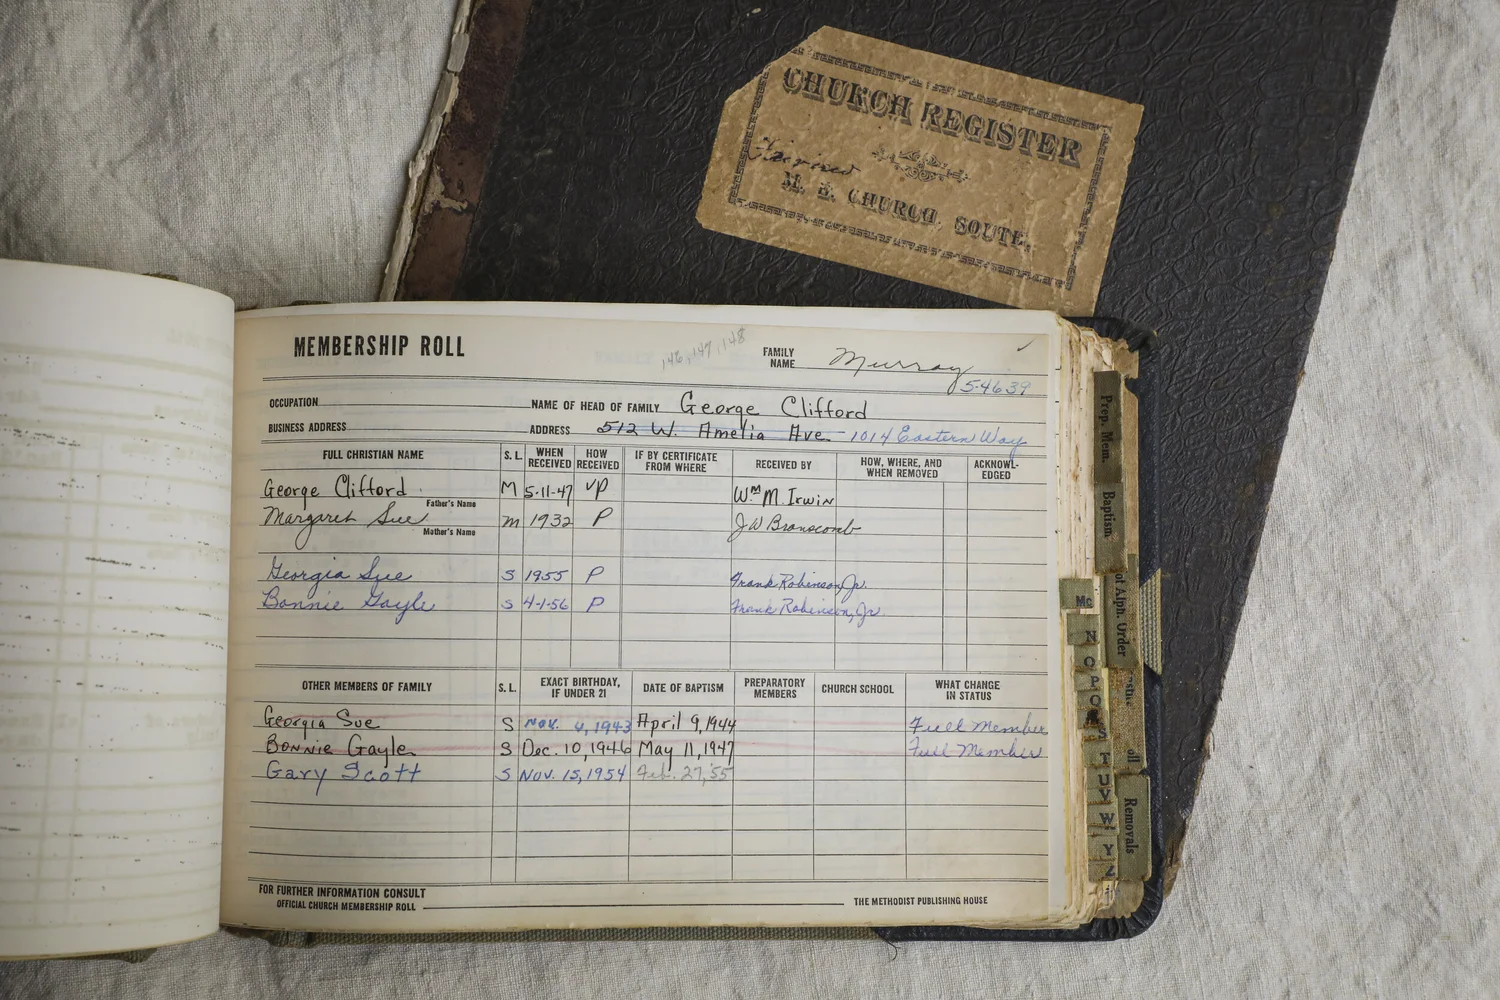 CHURCH REGISTER
M. E. CHURCH, SOUTH.
MEMBERSHIP ROLL
146, 147, 148
FAMILY NAME Murray
5-4639
OCCUPATION NAME OF HEAD OF FAMILY George Clifford
BUSINESS ADDRESS ADDRESS 512 W. Amelia Ave. 1014 Eastern Way
FULL CHRISTIAN NAME S. L. WHEN RECEIVED HOW RECEIVED IF BY CERTIFICATE FROM WHERE RECEIVED BY HOW, WHERE, AND WHEN REMOVED ACKNOWLEDGED
George Clifford M 5-11-47 VP Wm M. Irwin
Father's Name
Margaret Sue m 1932 P J W Branscomb
Mother's Name
Georgia Sue S 1955 P Frank Robinson, Jr.
Bonnie Gayle S 4-1-56 P Frank Robinson, Jr.
OTHER MEMBERS OF FAMILY S. L. EXACT BIRTHDAY, IF UNDER 21 DATE OF BAPTISM PREPARATORY MEMBERS CHURCH SCHOOL WHAT CHANGE IN STATUS
Georgia Sue S Nov. 4, 1943 April 9, 1944 Full Member
Bonnie Gayle S Dec. 10, 1946 May 11, 1947 Full Member
Gary Scott S Nov. 15, 1954 Feb. 27, '55
FOR FURTHER INFORMATION CONSULT
OFFICIAL CHURCH MEMBERSHIP ROLL THE METHODIST PUBLISHING HOUSE
Prep. Mem.
Baptism
Alph. Order
Removals
Mc
N
O
P
Q
S
T
U
V
W
Y
Z